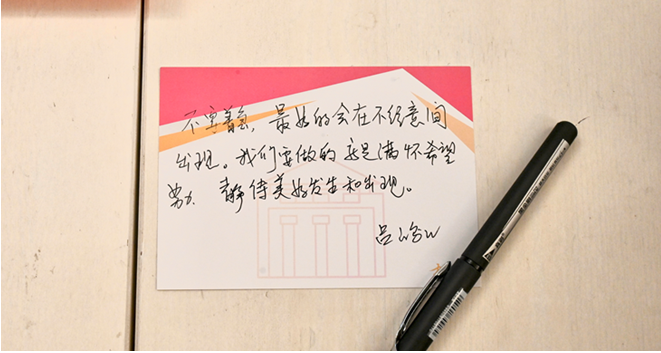 不要着急，最好的会在不经意间
出现。我们要做的就是满怀希望
努力 静待美好发生和出现。
吕